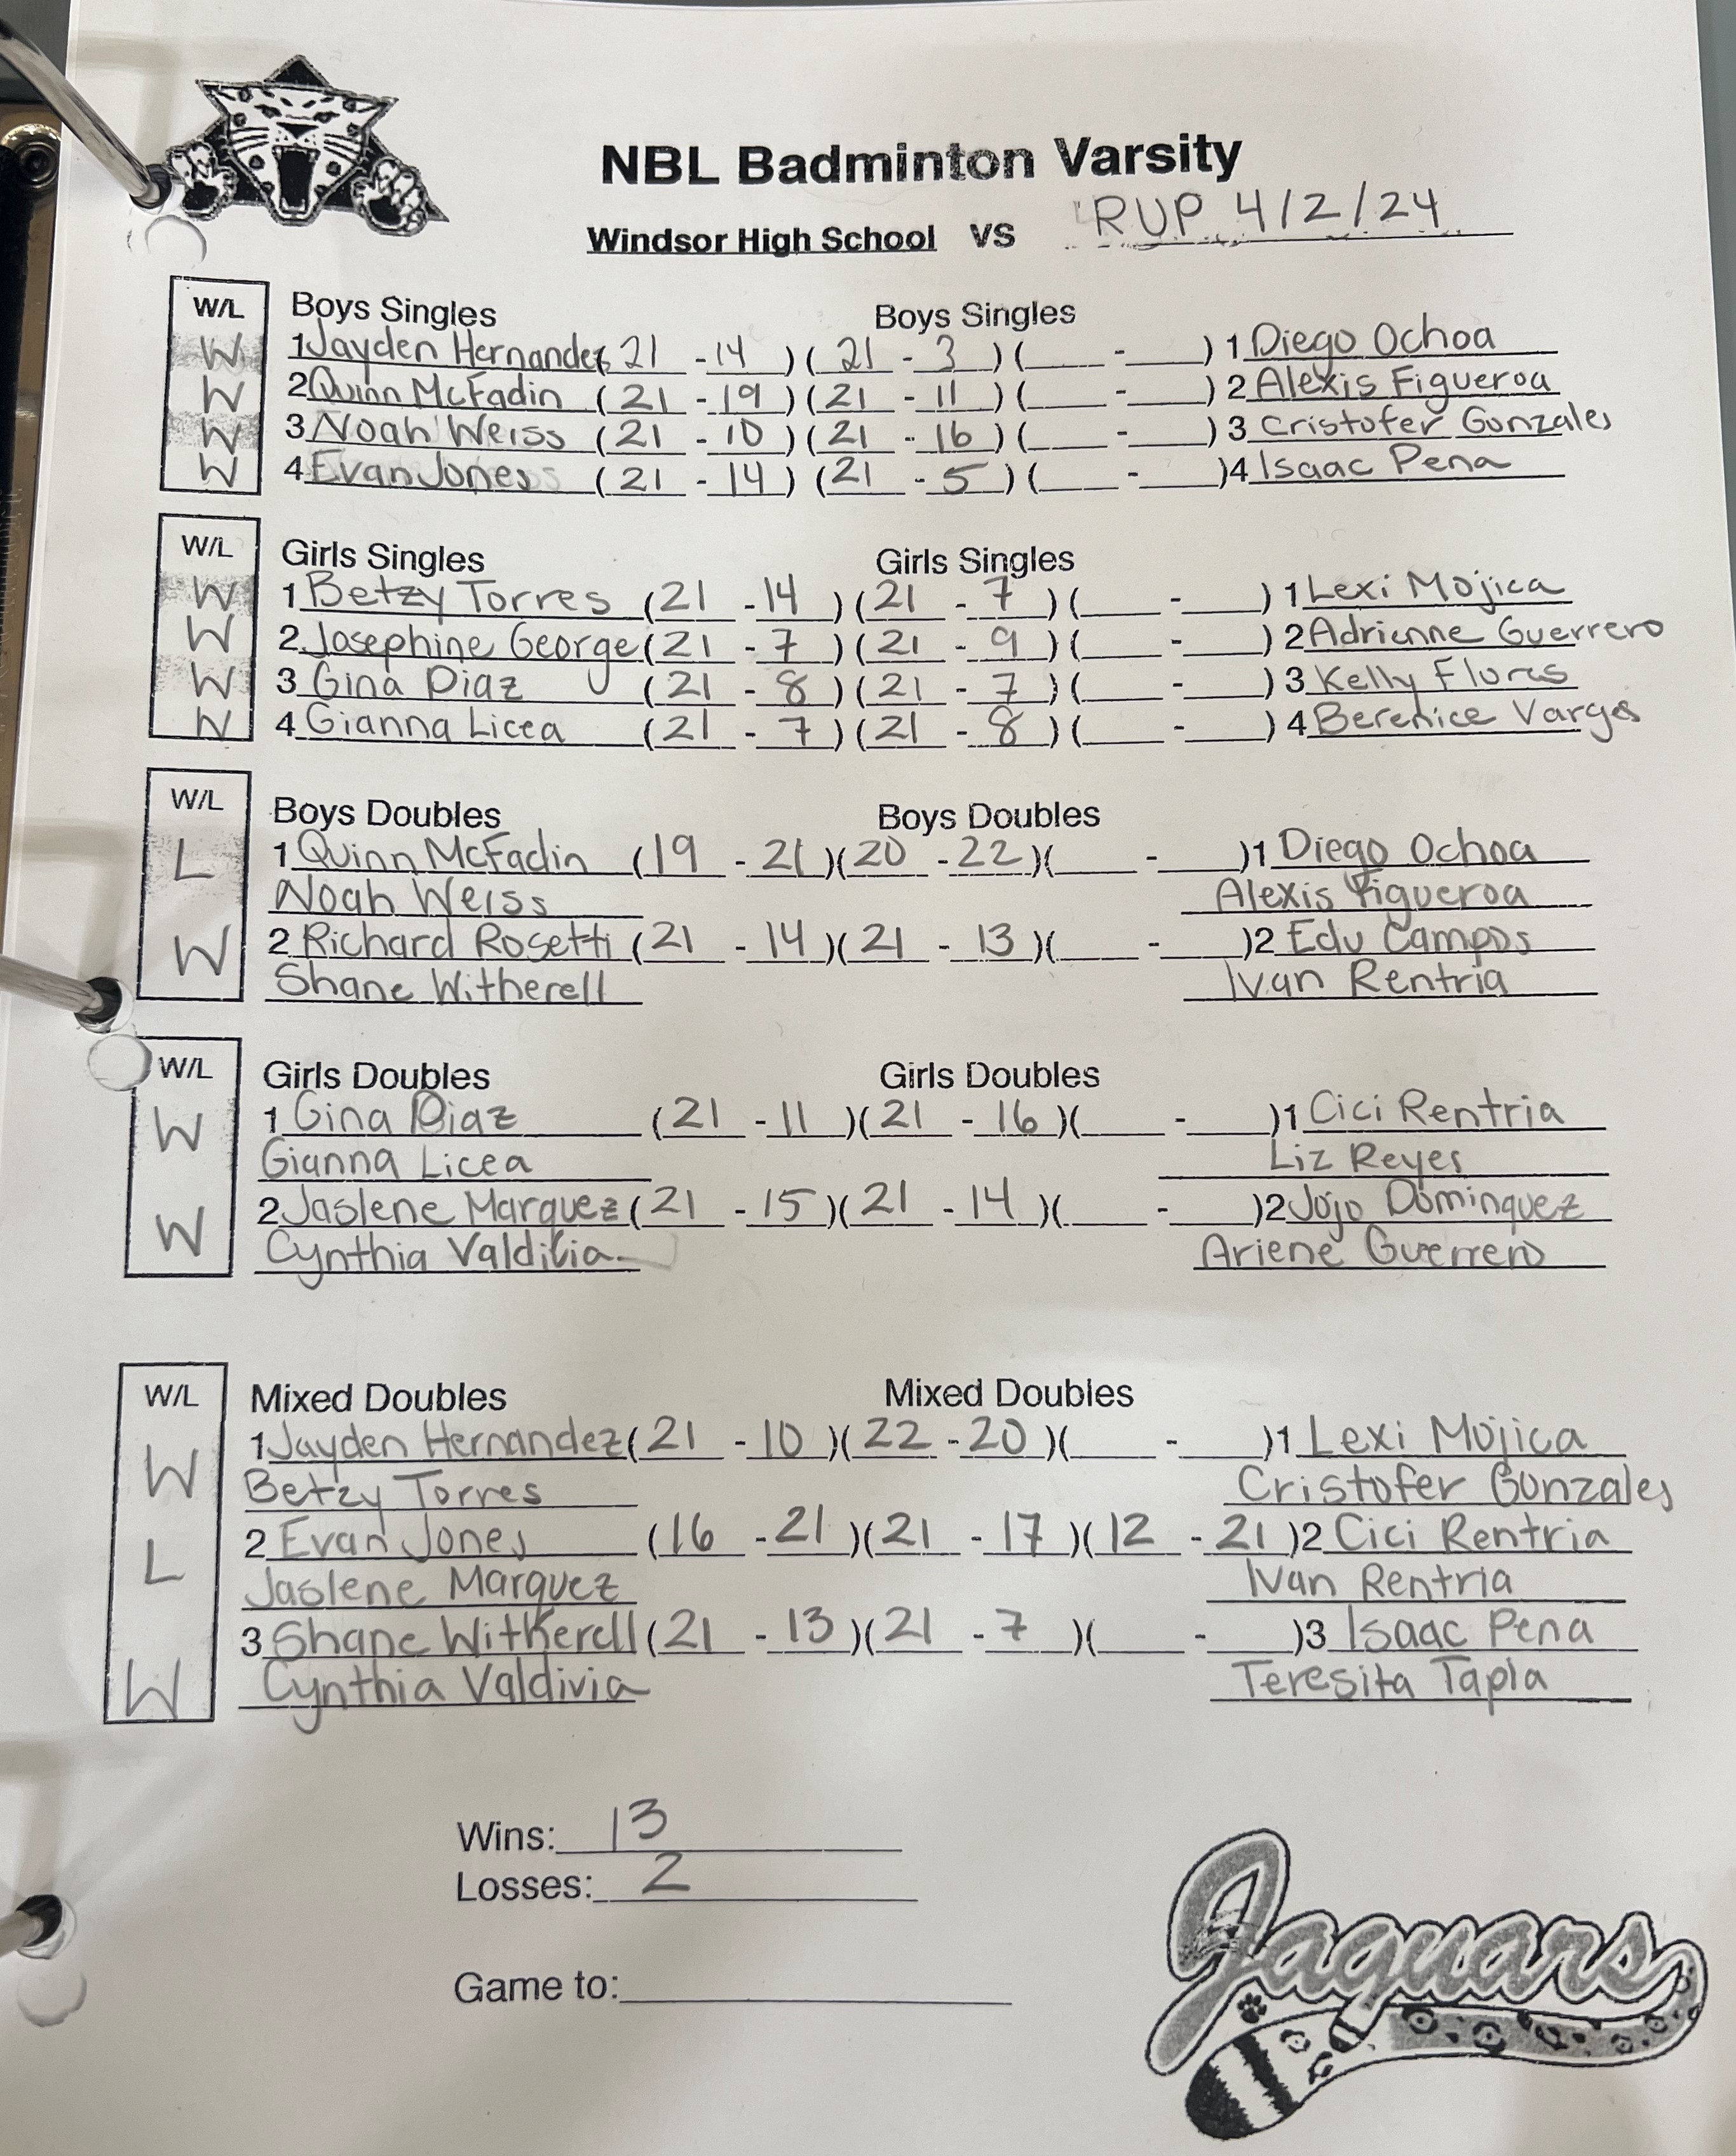 NBL Badminton Varsity
Windsor High School VS RUP 4/2/24
W/L Boys Singles Boys Singles
W 1 Jayden Hernandez (21 - 14) (21 - 3) (___-___) 1 Diego Ochoa
W 2 Quinn McFadin (21 - 19) (21 - 11) (___-___) 2 Alexis Figueroa
W 3 Noah Weiss (21 - 10) (21 - 16) (___-___) 3 Cristofer Gonzales
W 4 Evan Jones (21 - 14) (21 - 5) (___-___) 4 Isaac Pena
W/L Girls Singles Girls Singles
W 1 Betzy Torres (21 - 14) (21 - 7) (___-___) 1 Lexi Mojica
W 2 Josephine George (21 - 7) (21 - 9) (___-___) 2 Adrienne Guerrero
W 3 Gina Diaz (21 - 8) (21 - 7) (___-___) 3 Kelly Flores
W 4 Gianna Licea (21 - 7) (21 - 8) (___-___) 4 Berenice Varges
W/L Boys Doubles Boys Doubles
L 1 Quinn McFadin (19 - 21) (20 - 22) (___-___) 1 Diego Ochoa
Noah Weiss Alexis Figueroa
W 2 Richard Rosetti (21 - 14) (21 - 13) (___-___) 2 Edu Campos
Shane Witherell Ivan Rentria
W/L Girls Doubles Girls Doubles
W 1 Gina Diaz (21 - 11) (21 - 16) (___-___) 1 Cici Rentria
Gianna Licea Liz Reyes
W 2 Jaslene Marquez (21 - 15) (21 - 14) (___-___) 2 Jojo Dominquez
Cynthia Valdilia Ariene Guerrero
W/L Mixed Doubles Mixed Doubles
W 1 Jayden Hernandez (21 - 10) (22 - 20) (___-___) 1 Lexi Mojica
Betzy Torres Cristofer Gonzales
L 2 Evan Jones (16 - 21) (21 - 17) (12 - 21) 2 Cici Rentria
Jaslene Marquez Ivan Rentria
W 3 Shane Witherell (21 - 13) (21 - 7) (___-___) 3 Isaac Pena
Cynthia Valdivia Teresita Tapia
Wins: 13
Losses: 2
Game to:
Jaguars